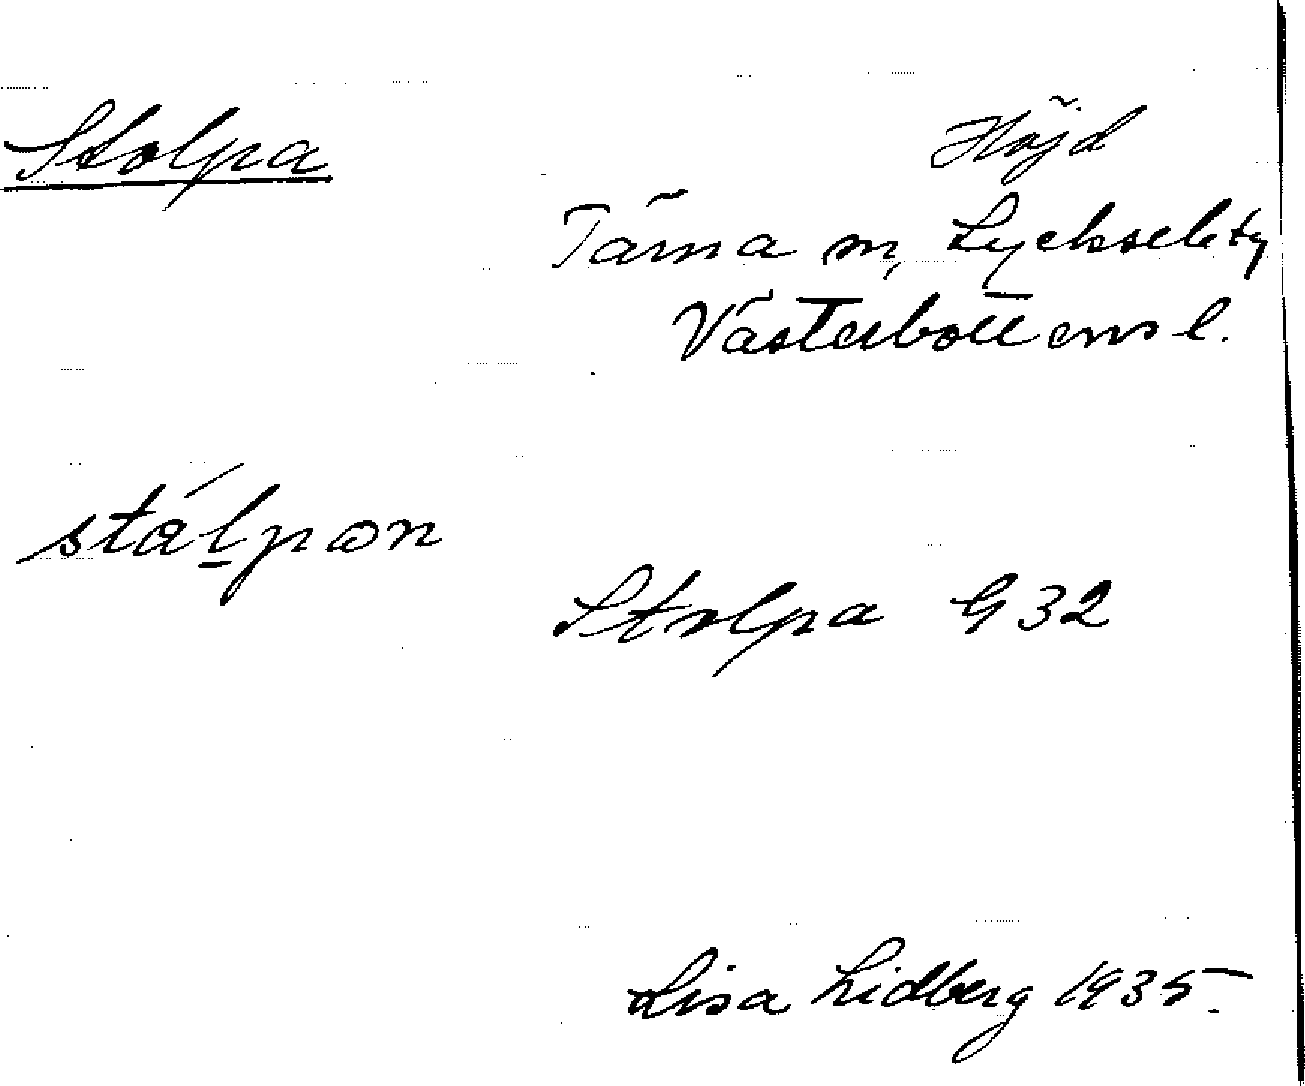 Stolpa
Höjd
Tärna sn, Lycksele tg
Västerbottens l.
stálpɷn
Stolpa G 32
Lisa Lidberg 1935.